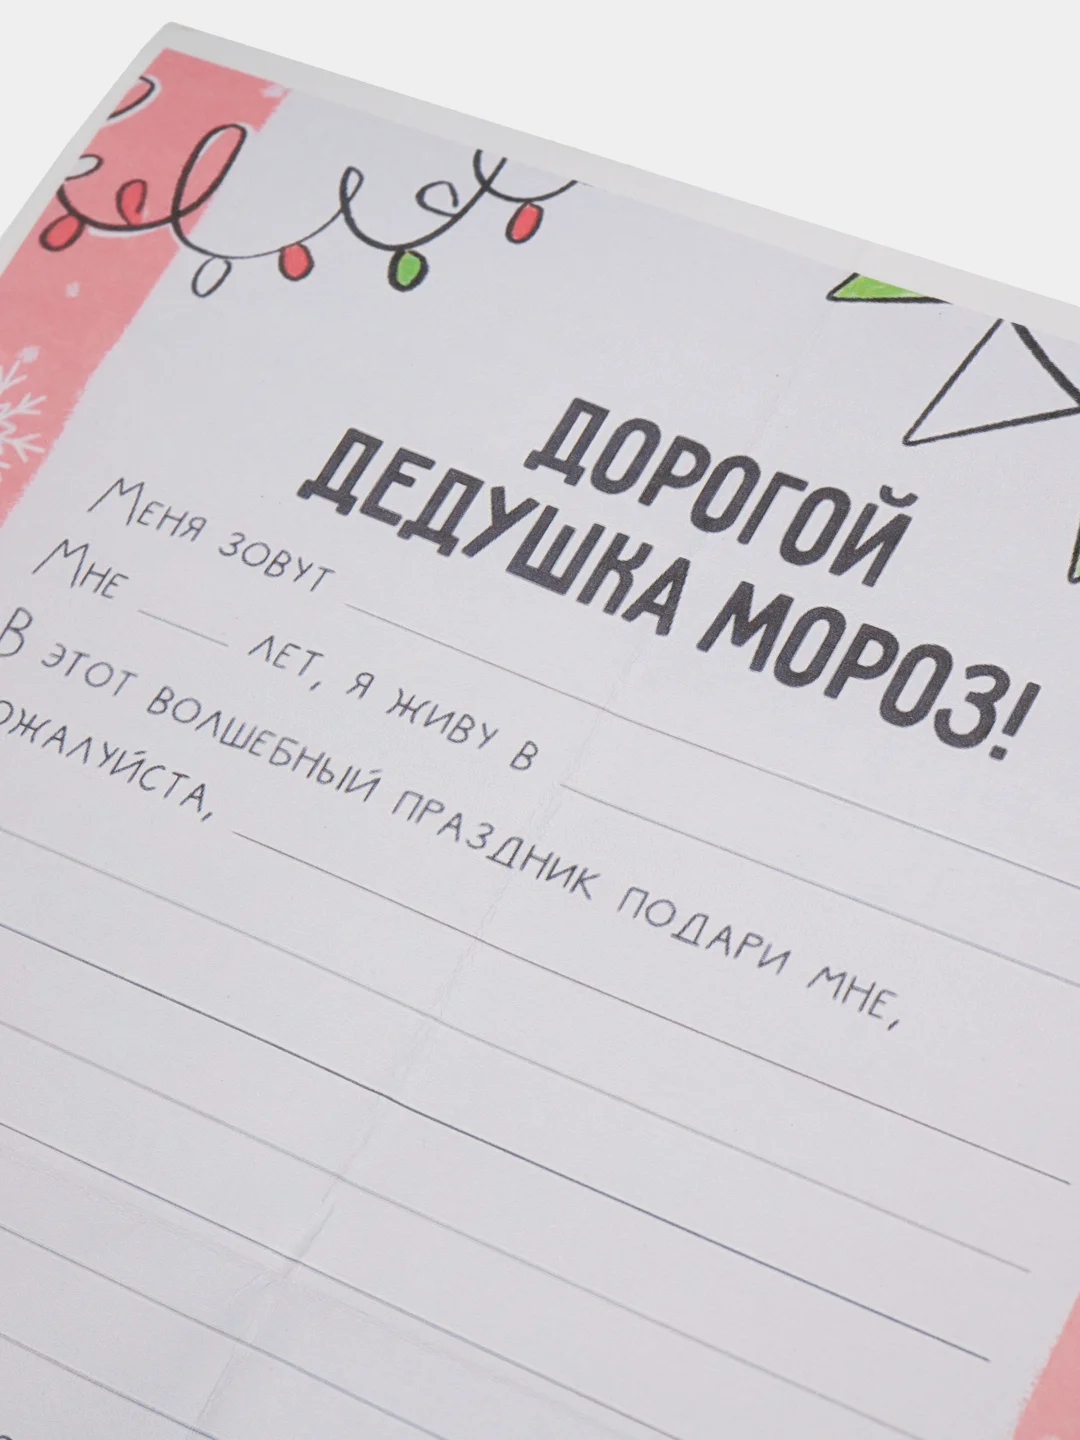 ДОРОГОЙ
ДЕДУШКА МОРОЗ!
Меня зовут
Мне лет, я живу в
В этот волшебный праздник подари мне,
пожалуйста,